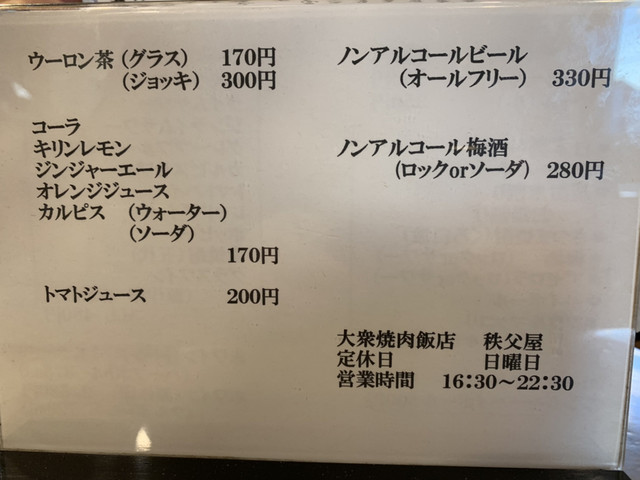 ウーロン茶(グラス) 170円
(ジョッキ) 300円
コーラ
キリンレモン
ジンジャーエール
オレンジジュース
カルピス (ウォーター)
(ソーダ)
170円
トマトジュース 200円
ノンアルコールビール
(オールフリー) 330円
ノンアルコール梅酒
(ロックorソーダ) 280円
大衆焼肉飯店 秩父屋
定休日 日曜日
営業時間 16:30〜22:30